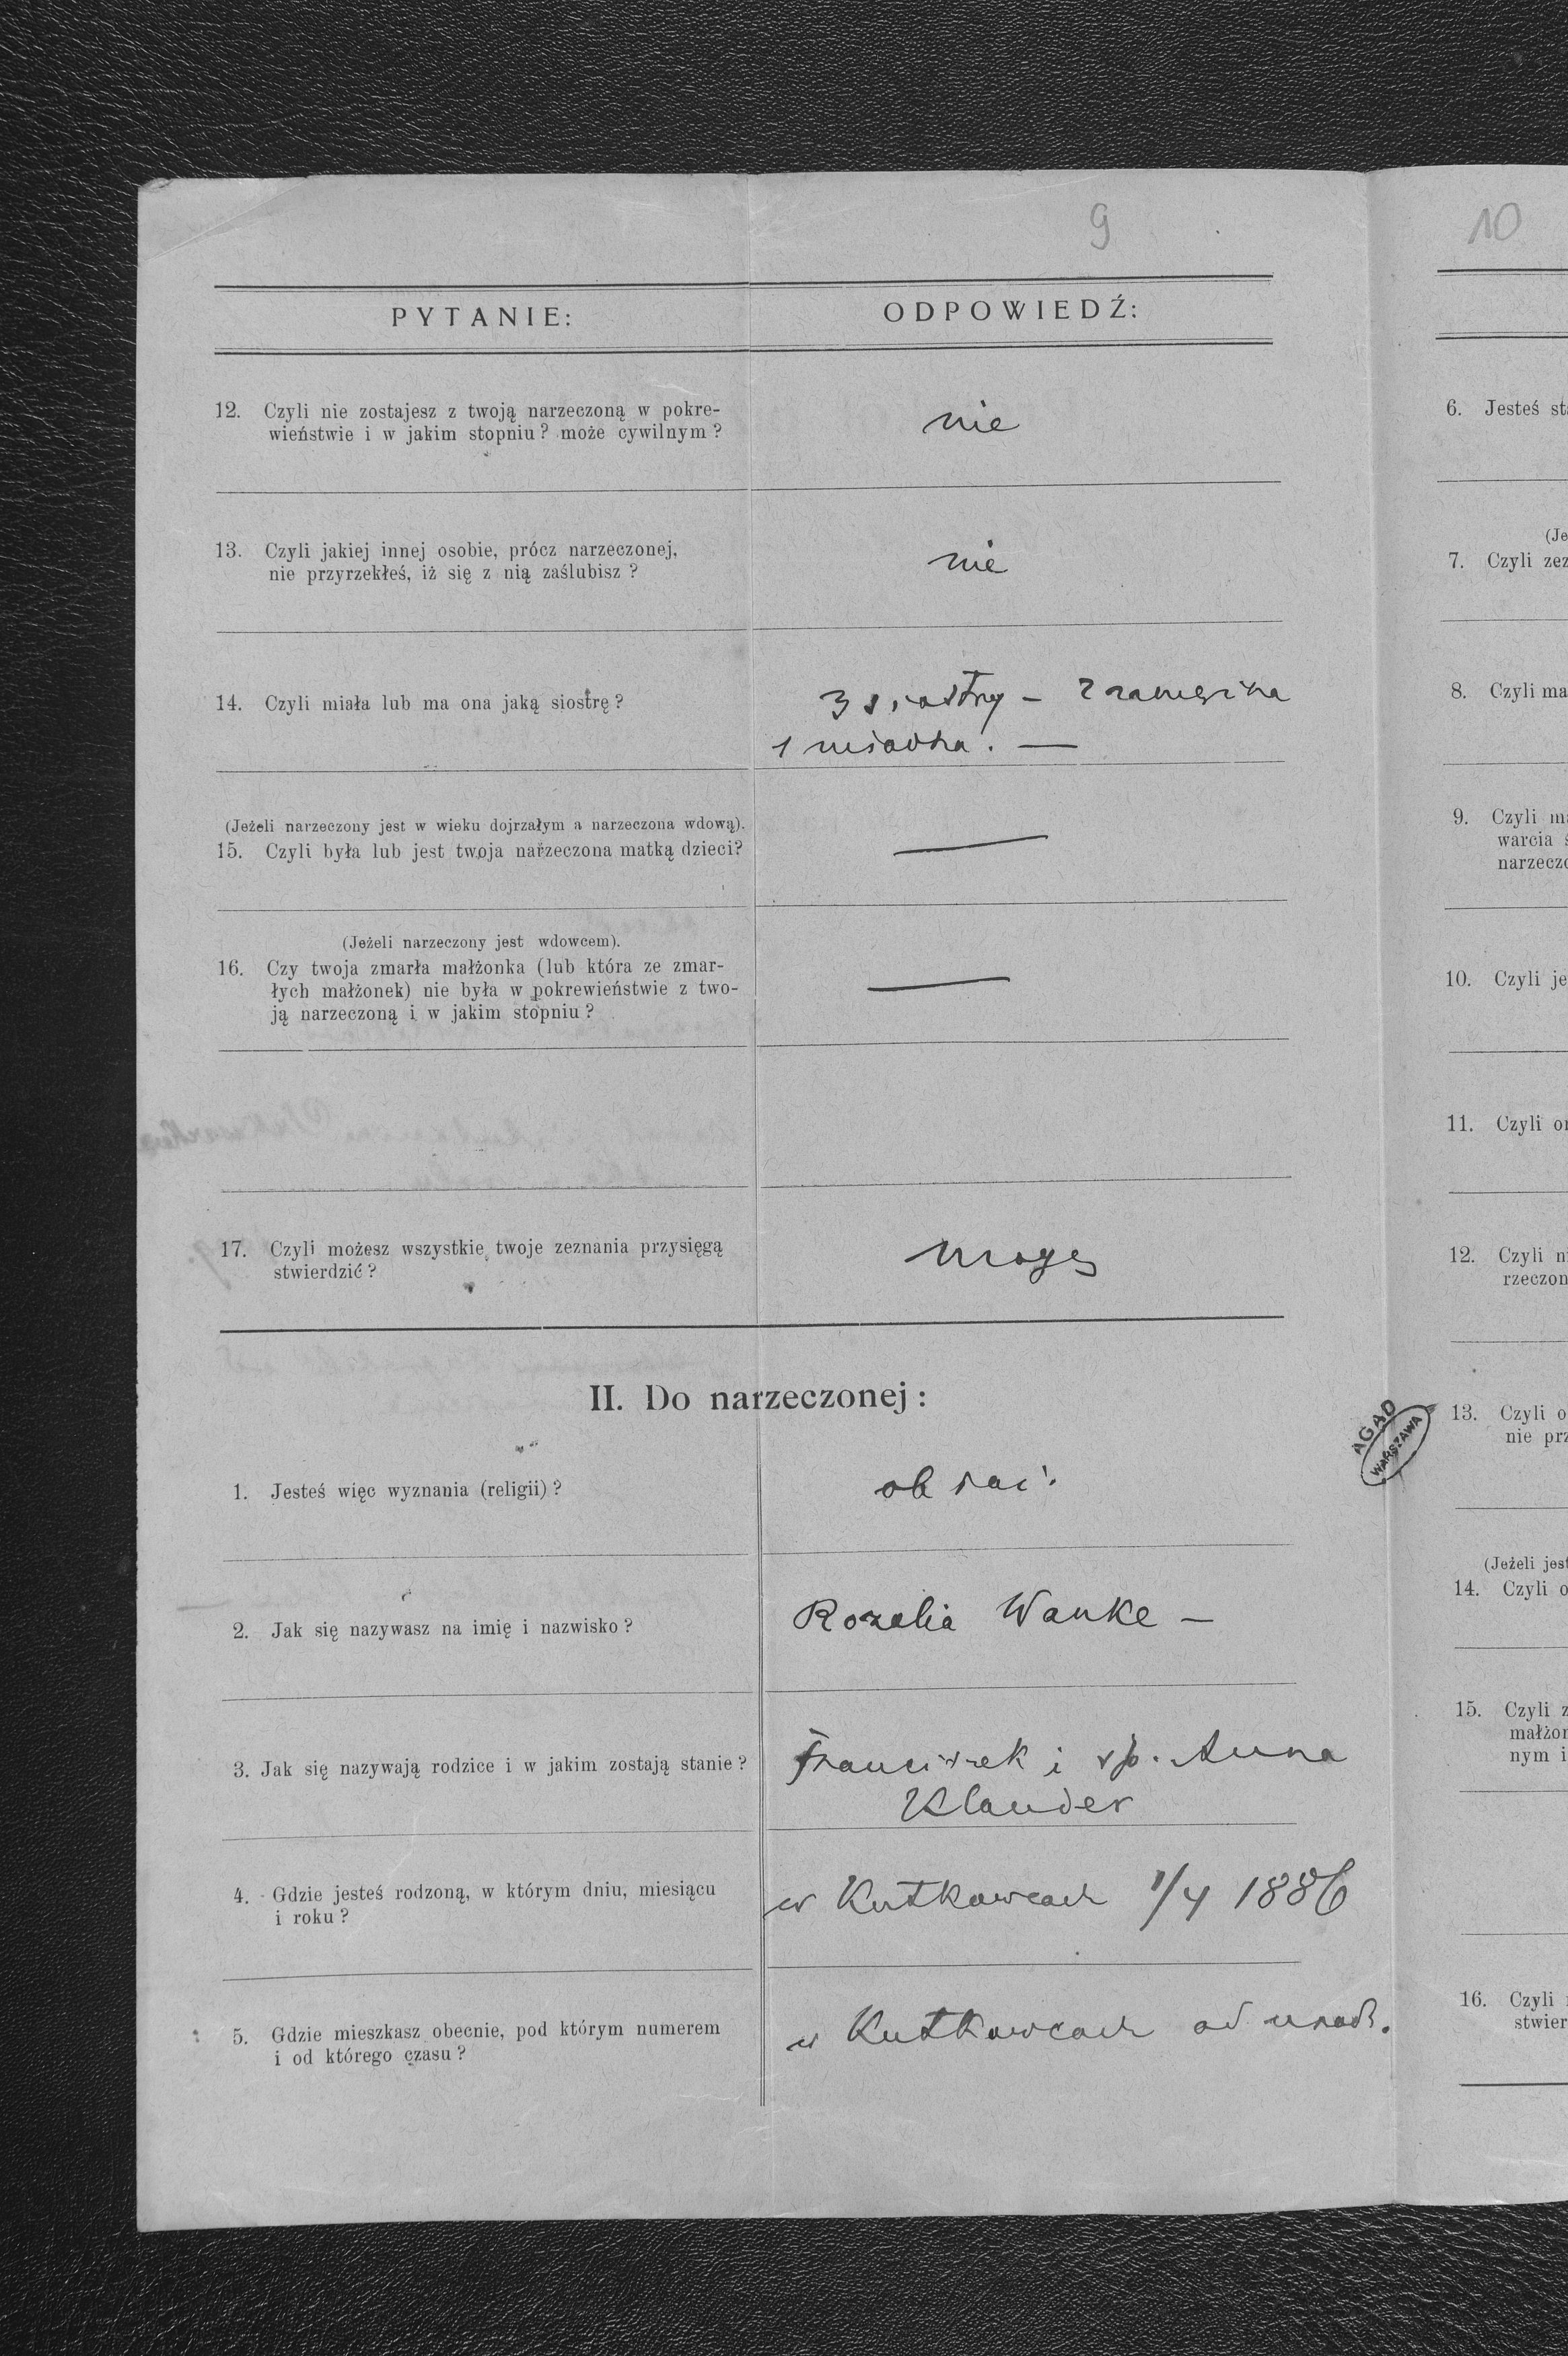 9
PYTANIE:
ODPOWIEDŹ:
12. Czyli nie zostajesz z twoją narzeczoną w pokre-
wieństwie i w jakim stopniu? może cywilnym?
nie
13. Czyli jakiej innej osobie, prócz narzeczonej,
nie przyrzekłeś, iż się z nią zaślubisz ?
nie
14. Czyli miała lub ma ona jaką siostrę ?
3 siostry – 2 zamężna
1 młodsza. —
(Jeżeli narzeczony jest w wieku dojrzałym a narzeczona wdową).
15. Czyli była lub jest twoja narzeczona matką dzieci?
—
(Jeżeli narzeczony jest wdowcem).
16. Czy twoja zmarła małżonka (lub która ze zmar-
łych małżonek) nie była w pokrewieństwie z two-
ją narzeczoną i w jakim stopniu ?
—
17. Czyli możesz wszystkie twoje zeznania przysięgą
stwierdzić ?
mogę
II. Do narzeczonej :
1. Jesteś więc wyznania (religii) ?
ob łać:
2. Jak się nazywasz na imię i nazwisko ?
Rozalia Wanke –
3. Jak się nazywają rodzice i w jakim zostają stanie ?
Franciszek i śp. Anna
Klauder
4. Gdzie jesteś rodzoną, w którym dniu, miesiącu
i roku ?
w Kutkowcach 1/4 1886
5. Gdzie mieszkasz obecnie, pod którym numerem
i od którego czasu ?
w Kutkowcach od urodz.
AGAD
WARSZAWA
10
6. Jesteś st
(Je
7. Czyli zez
8. Czyli ma
9. Czyli ma
warcia ś
narzeczo
10. Czyli je
11. Czyli on
12. Czyli ni
rzeczon
13. Czyli o
nie prz
(Jeżeli jest
14. Czyli o
15. Czyli z
małżon
nym i
16. Czyli
stwier